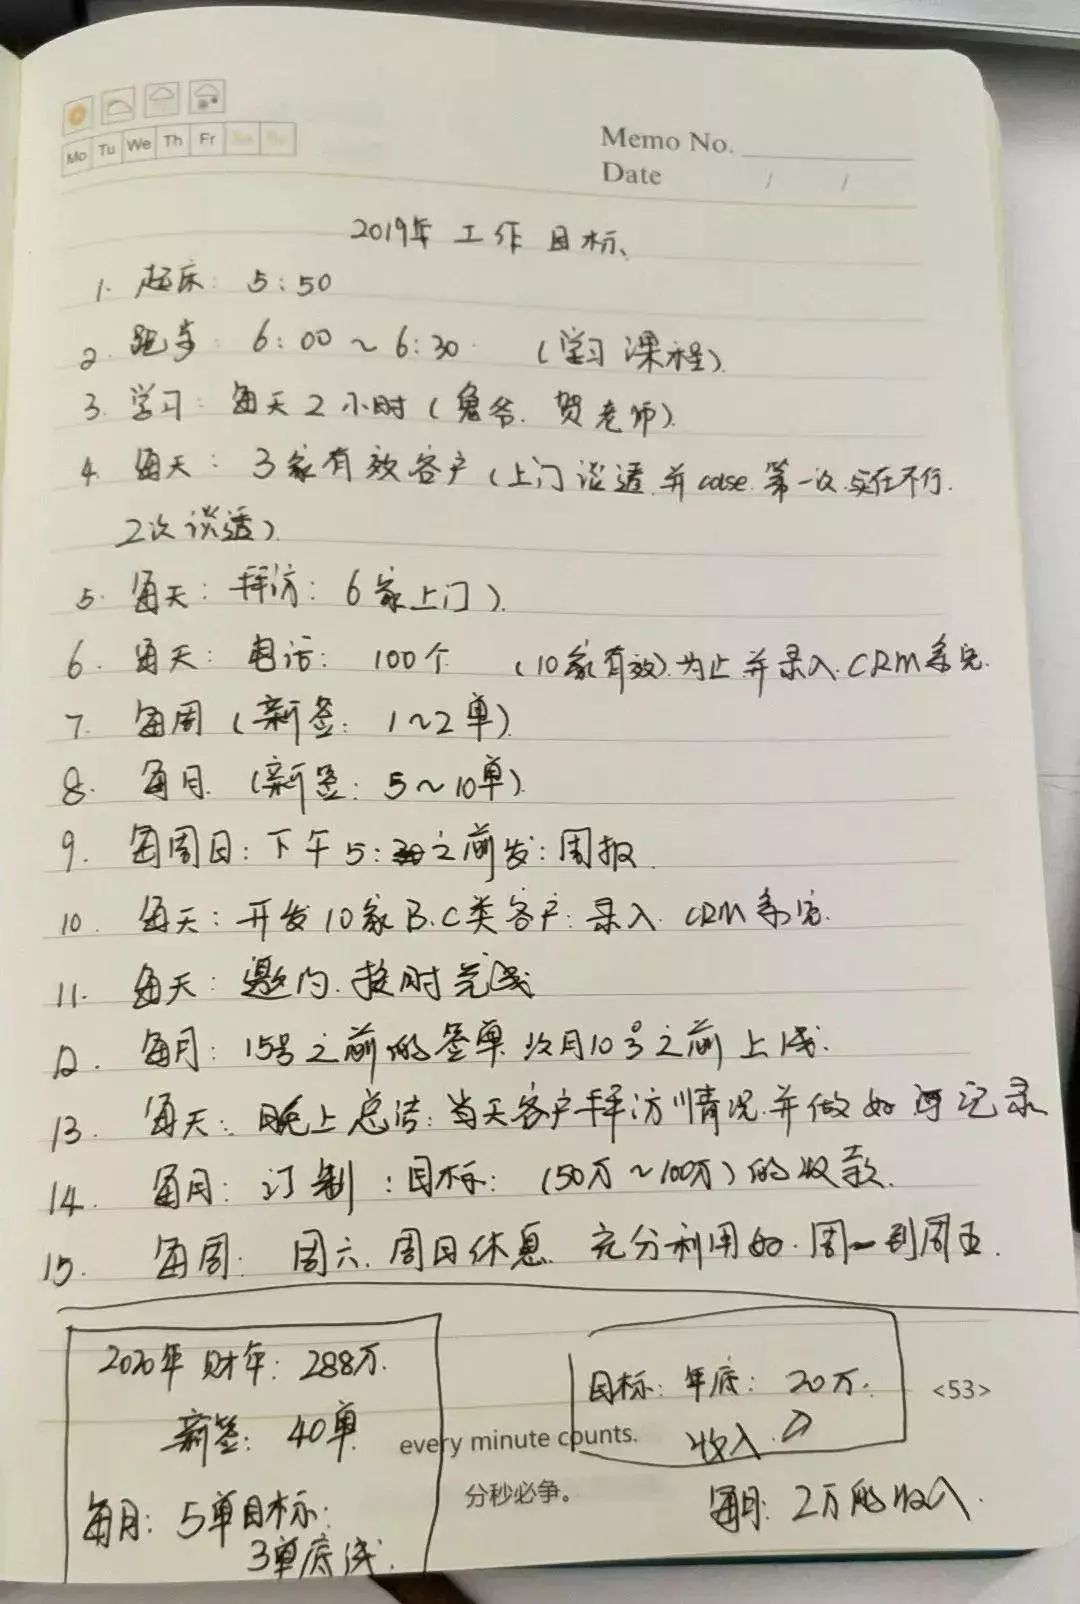 Mo Tu We Th Fr Sa Su
Memo No.
Date / /
2019年 工作目标、
1. 起床: 5:50
2. 跑步: 6:00～6:30 (学习课程)
3. 学习: 每天2小时(鬼爷. 贺老师)
4. 每天: 3家有效客户(上门谈透.并 第一次.实在不行.
2次谈透)
5. 每天: 拜访: 6家上门).
6. 每天: 电话: 100个 (10家有效)为止并录入.CRM系统.
7. 每周 (新签: 1～2单)
8. 每月. (新签: 5～10单)
9. 每周日:下午5: 之前发:周报
10. 每天:开发10家B.C类客户:录入. CRM系统.
11. 每天: 邀约.按时完成
12. 每月: 15号之前的签单 次月10号之前上线.
13. 每天: 晚上总结:当天客户拜访情况.并做好 记录
14. 每月: 订制:目标: (50万～100万)的收款.
15. 每周: 周六.周日休息 充分利用好.周一到周五.
2020年 财年: 288万.
新签: 40单
每月: 5单目标:
3单底线.
目标: 年底: 20万.
收入.
<53>
every minute counts.
分秒必争。
每月: 2万的收入.